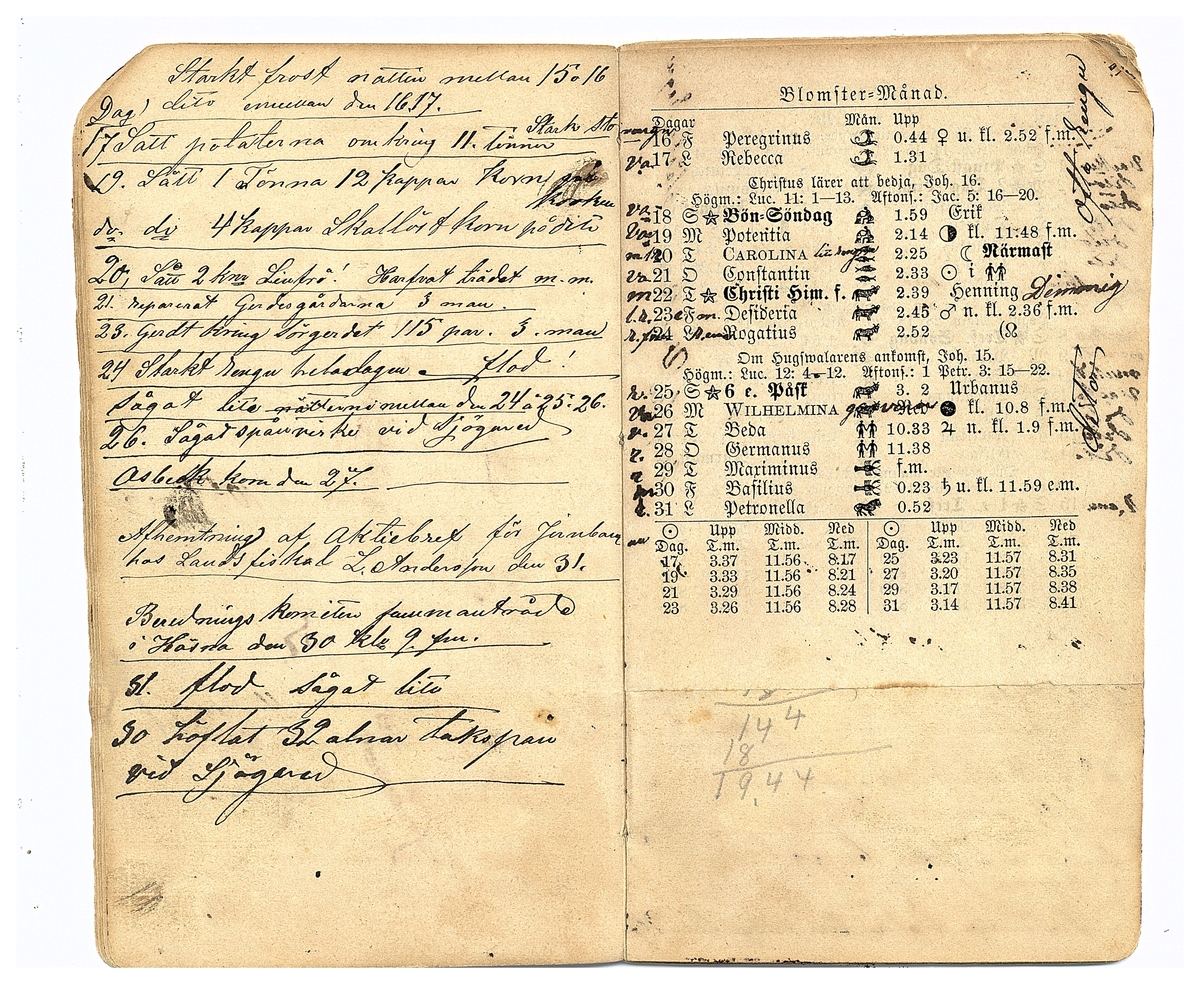 Starkt frost natten mellan 15 o 16
Dag! dito emellan den 16 17.
Stark
17 Satt potaterna omkring 11. tönnor
19. Sått 1 Tönna 12 Kappar Korn
do do 4 Kappar Skallöst korn på dito
20, Sått 2 knr Linfrö! Harfvat trädet m. m.
21. reparerat Gerdesgårdarna 3 man.
23. Gerdt kring sörgerdet 115 par. 3. man
24 Starkt rengn heladagen. flod!
Sågat lite nätterna mellan den 24 å 25. 26.
26. Sågad spånvirke vid Sjögared
Asbeck kom den 27.
Afhemtning af Aktiebref för Jernbaan
hos Landsfiskal L. Andersson den 31.
Berednings Komiten sammanträde
i Häsna den 30 klo 9 fm.
31. flod Sågat lite
30 höflat 32 alnar takspån
vid Sjögared
Blomster=Månad.
Dagar Mån. Upp
16 F Peregrinus 0.44 ♀ u. kl. 2.52 f.m.
17 L Rebecca 1.31
Christus lärer att bedja, Joh. 16.
Högm.: Luc. 11: 1—13. Aftons.: Jac. 5: 16—20.
18 S ☆ Bön=Söndag 1.59 Erik
19 M Potentia 2.14 kl. 11.48 f.m.
20 T CAROLINA 2.25 ☾ Närmast
21 O Constantin 2.33 ☉ i
22 T ☆ Christi Him. f. 2.39 Henning
23 F Desideria 2.45 ♂ n. kl. 2.36 f.m.
24 L Rogatius 2.52 (☊
Om Hugswalarens ankomst, Joh. 15.
Högm.: Luc. 12: 4—12. Aftons.: 1 Petr. 3: 15—22.
25 S ☆ 6 e. Påsk 3. 2 Urbanus
26 M WILHELMINA Ned ● kl. 10.8 f.m.
27 T Beda 10.33 ♃ n. kl. 1.9 f.m.
28 O Germanus 11.38
29 T Maximinus f.m.
30 F Basilius 0.23 ♄ u. kl. 11.59 e.m.
31 L Petronella 0.52
☉ Upp Midd. Ned ☉ Upp Midd. Ned
Dag. T.m. T.m. T.m. Dag. T.m. T.m. T.m.
17 3.37 11.56 8.17 25 3.23 11.57 8.31
19 3.33 11.56 8.21 27 3.20 11.57 8.35
21 3.29 11.56 8.24 29 3.17 11.57 8.38
23 3.26 11.56 8.28 31 3.14 11.57 8.41
18
144
18
1944